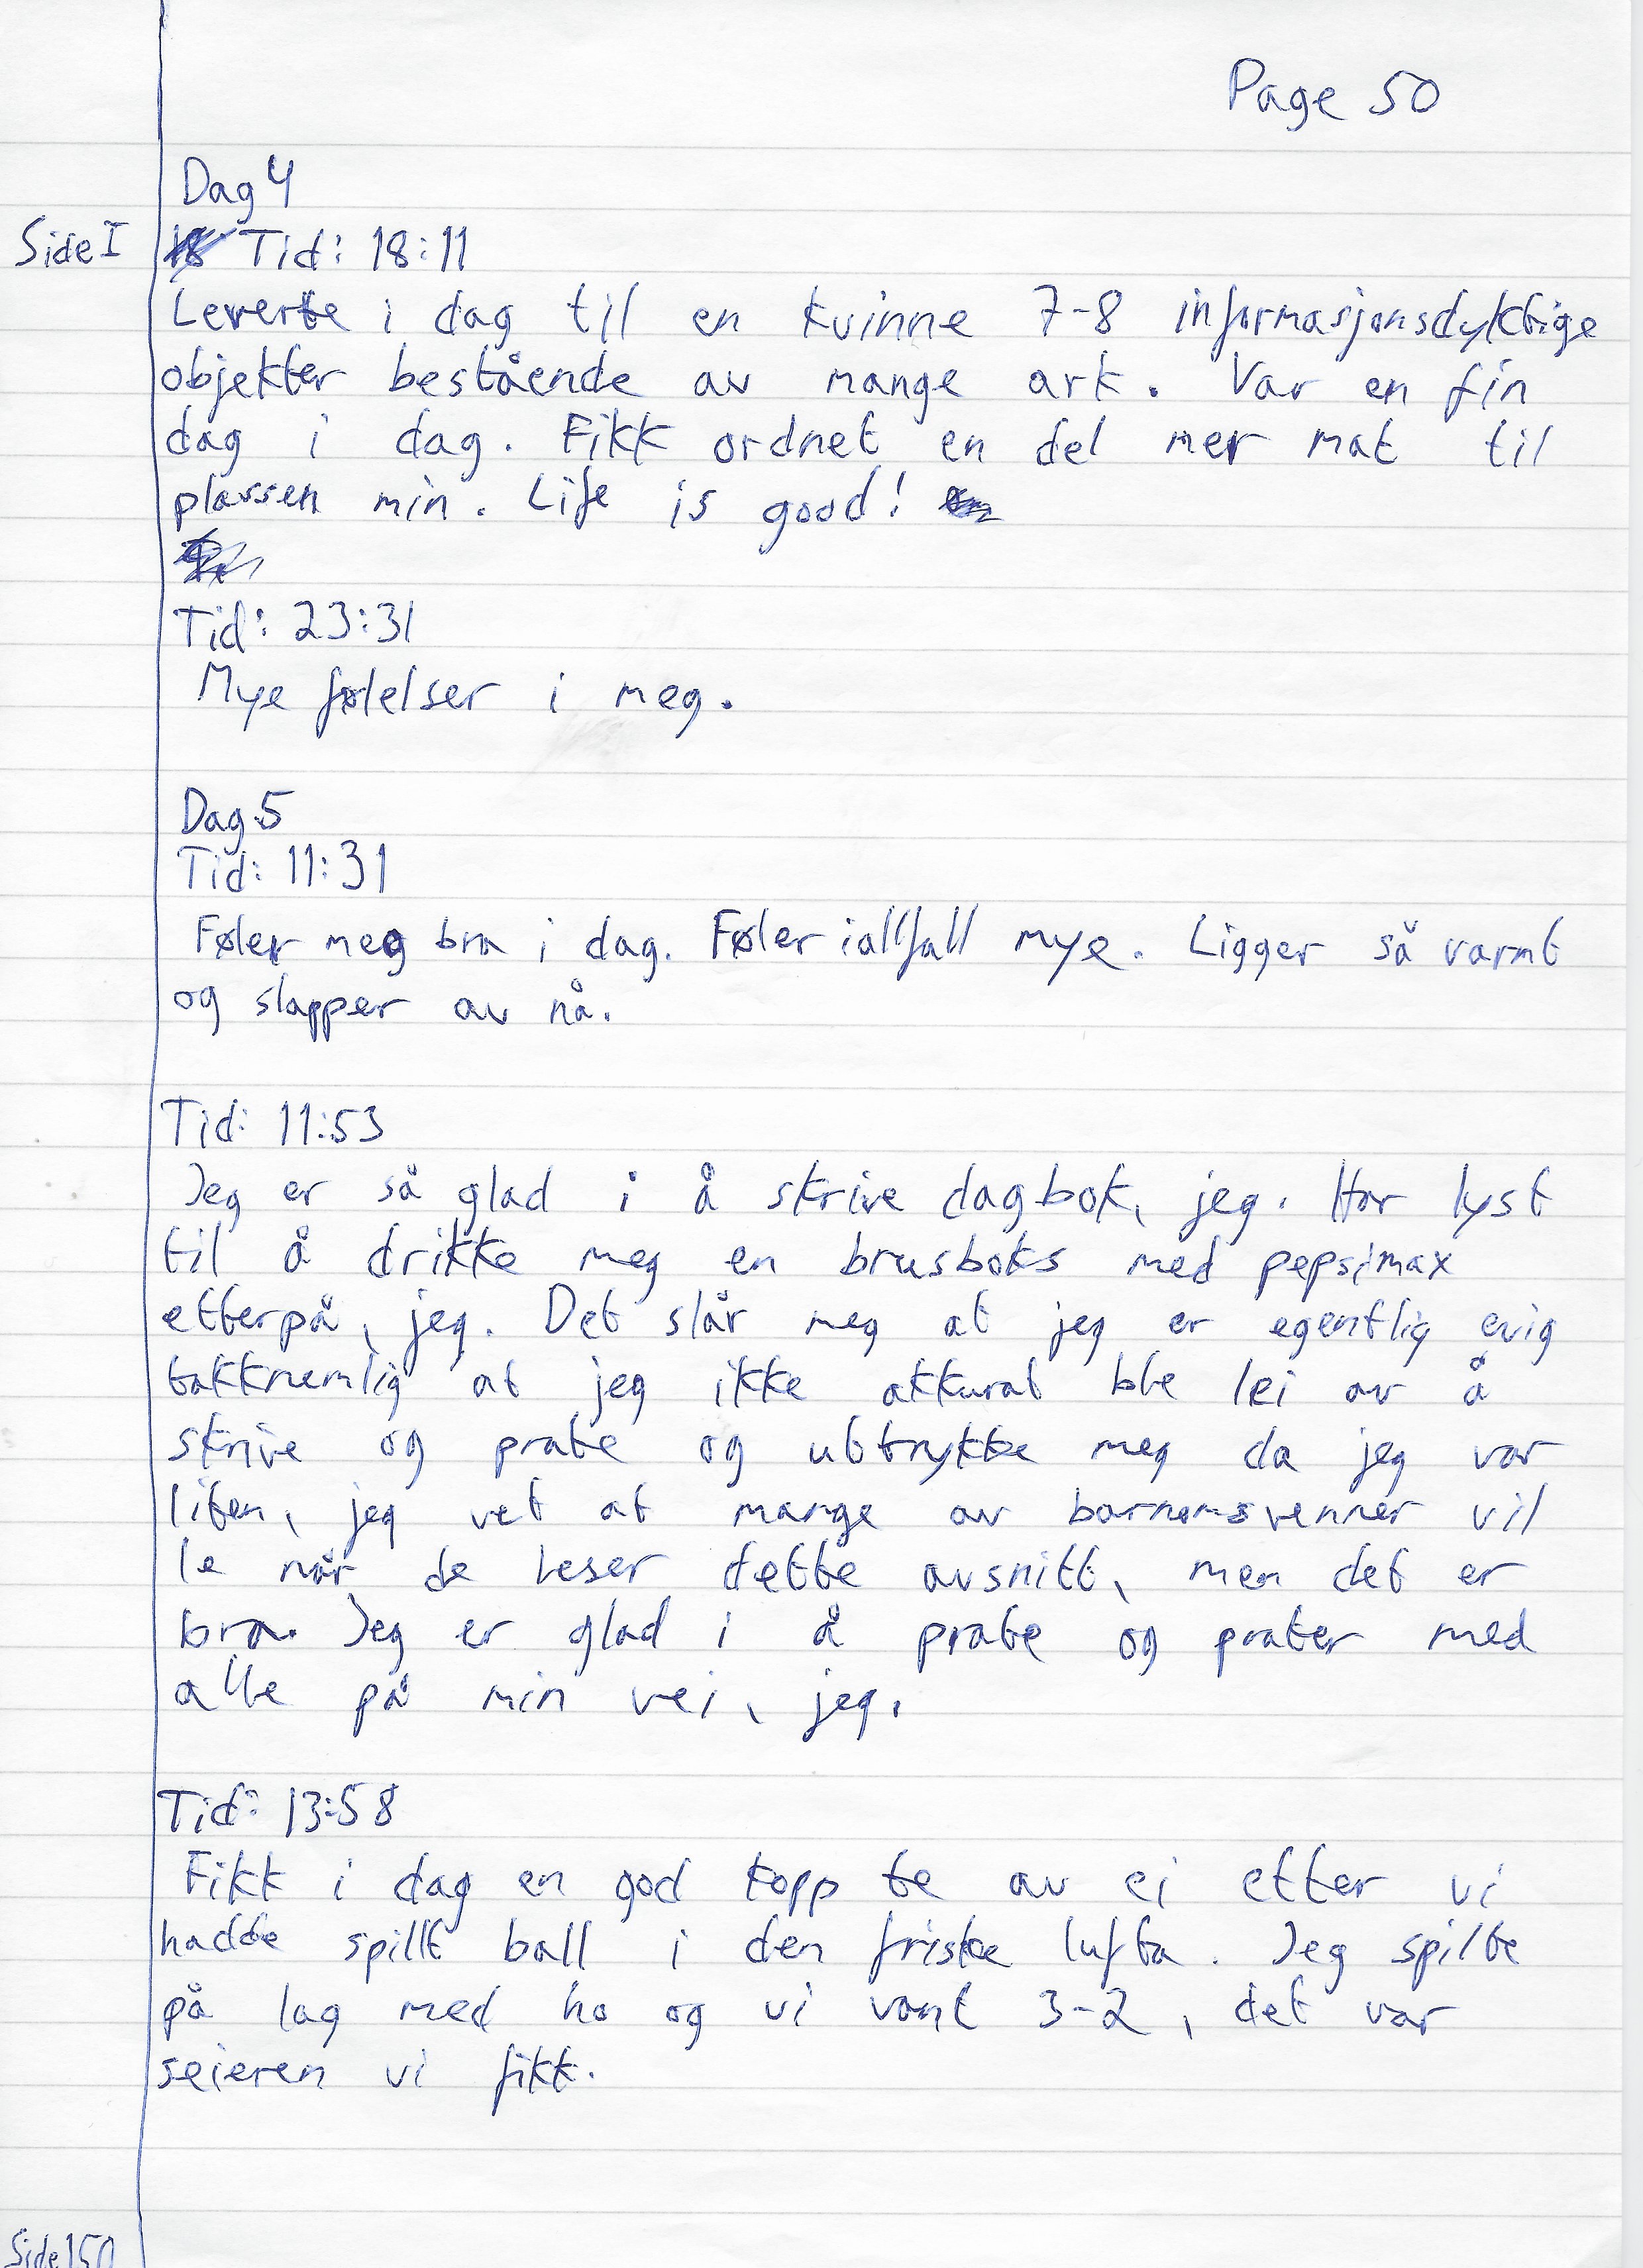 Page 50
Dag 4
Side I
Tid: 18:11
Leverte i dag til en kvinne 7-8 informasjonsdyktige
objekter bestående av mange ark. Var en fin
dag i dag. Fikk ordnet en del mer mat til
plassen min. Life is good!
Tid: 23:31
Mye følelser i meg.
Dag 5
Tid: 11:31
Føler meg bra i dag. Føler iallfall mye. Ligger så varmt
og slapper av nå.
Tid: 11:53
Jeg er så glad i å skrive dagbok, jeg. Har lyst
til å drikke meg en brusboks med pepsimax
etterpå, jeg. Det slår meg at jeg er egentlig evig
takknemlig at jeg ikke akkurat ble lei av å
skrive og prate og uttrykke meg da jeg var
liten, jeg vet at mange av barnomsvenner vil
le når de leser dette avsnitt, men det er
bra. Jeg er glad i å prate og prater med
alle på min vei, jeg.
Tid: 13:58
Fikk i dag en god kopp te av ei etter vi
hadde spillt ball i den friske lufta. Jeg spilte
på lag med ho og vi vant 3-2, det var
seieren vi fikk.
Side 150